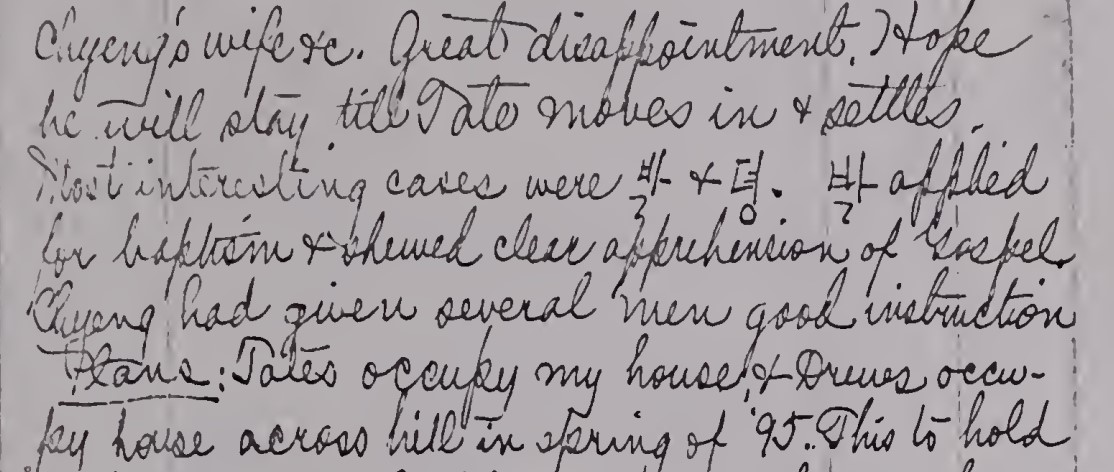 Chyeng's wife &c. Great disappointment. Hope
he will stay till Tate moves in & settles.
Most interesting cases were 박 & 뎡. 박 applied
for baptism & shewed clear apprehension of Gospel.
Chyeng had given several men good instruction
Plans: Tates occupy my house, & Drews occu-
py house across hill in spring of '95. This to hold